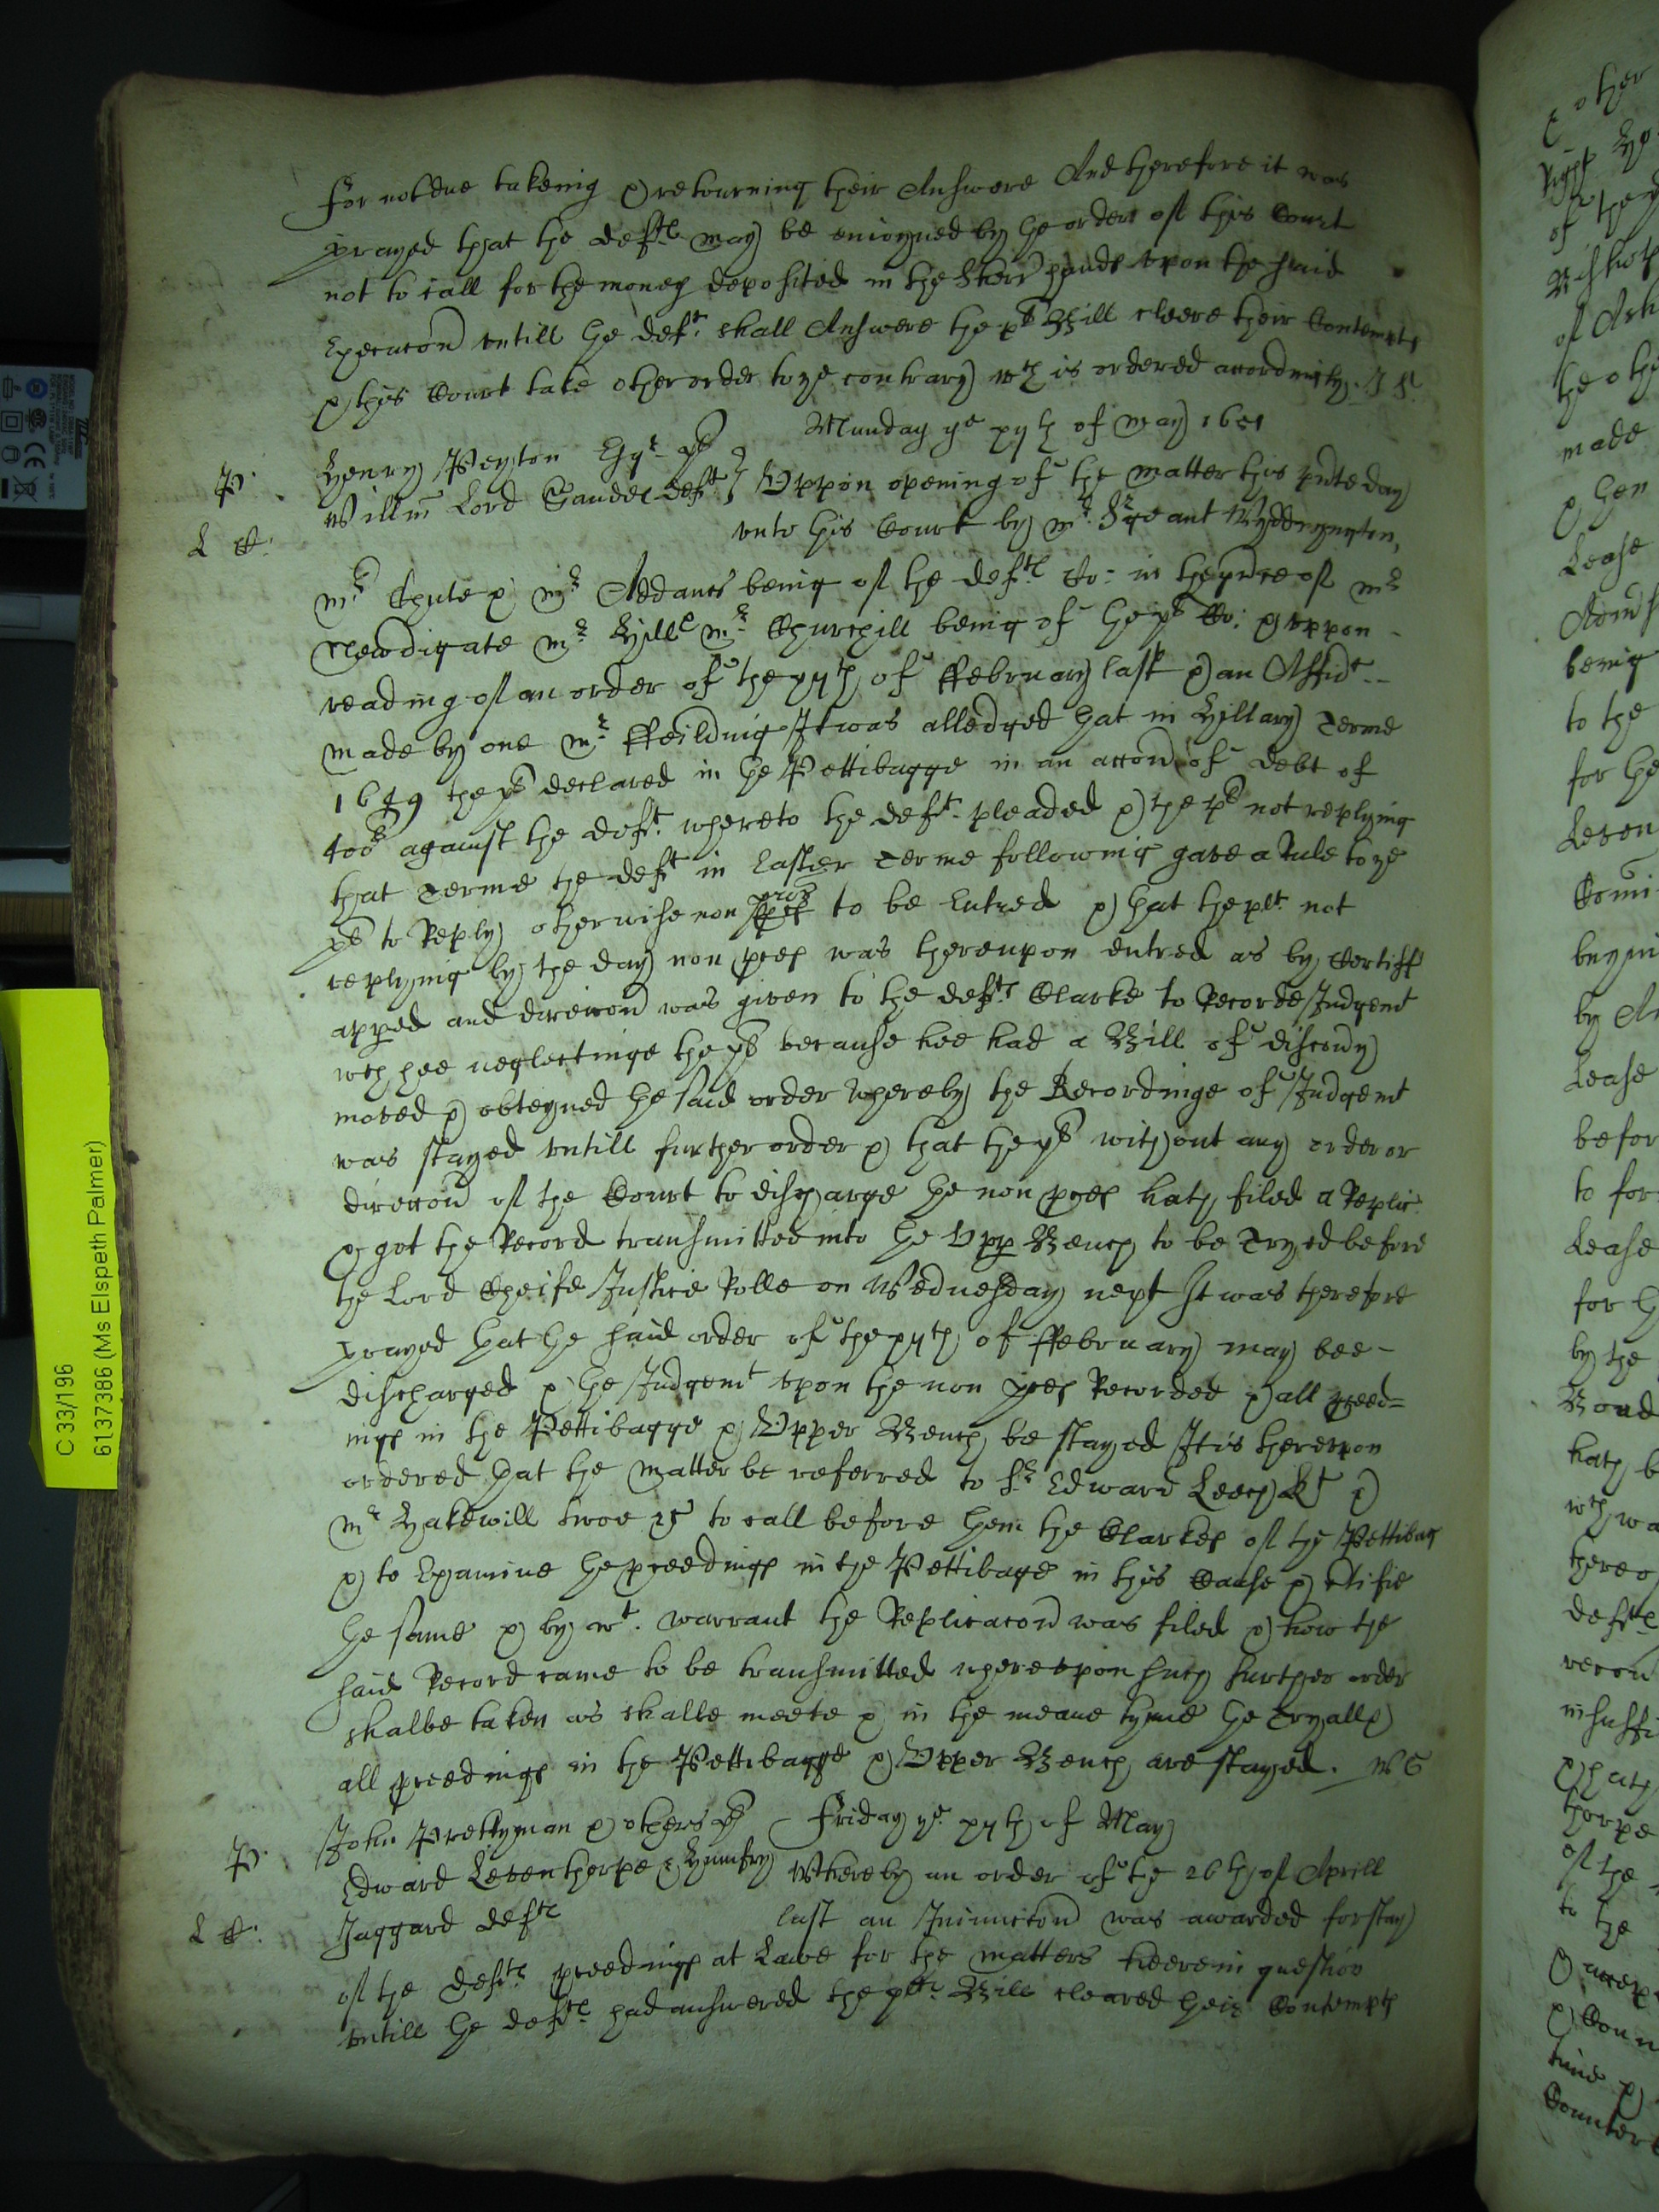 for not due takeing & retourning their Answere And therefore it was
prayed that the defts may be enioyned by the order of this Court
not to call for the money deposited in the Sherr hands vpon the said
Execucon vntill the deft shall Answere the pl Bill cleere their Contempts
& this Court take other order to ye contrary wch is ordered accordingly. J S
Munday ye xijth of May 1651
P.
Henry Peyton Esqr pl
Willm Lord deft
Vppon opening of the matter this pnte day
L C:
vnto this Court by mr Srgeant
mr Chute & mr Addams being of the defts Co: in the pnce of mr
Newdigate mr Hill & mr Churchill being of the pl Co: & vppon
reading of an order of the xijth of ffebruary last & an Affidt
made by one mr ffeilding It was alledged that in Hillary Terme
1649 the pl declared in the Pettibagge in an accon of debt of
400l against the deft whereto the deft pleaded & the pl not replying
that Terme the deft in Easter Terme following gave a Rule to ye
pl to Reply otherwise non pros to be Entred & that the plt not
replying by the day non pros was thereupon entred as by Certiff
apped and direccon was given to the defts Clarke to Recorde Judgemt
wch hee neglectinge the pl because hee had a Bill of discovy
moved & obteyned the said order whereby the Recordinge of Judgemt
was stayed vntill further order & that the pl without any order or
direccon of the Court to discharge the non pros hath filed a Replic
& got the Record transmitted into the Vpp Bench to be Tryed before
the Lord Cheife Justice Rolle on Wednesday next It was therefore
prayed that the said order of the xijth of ffebruary may bee
discharged & the Judgemt vpon the non pros Recorded & all pceed=
ings in the Pettibagge & Vpper Bench be stayed It is therevpon
ordered that the matter be referred to Sr Edward Leech kt &
mr Hakewill twoe &c to call before them the Clarkes of the Pettibag
& to Examine the pceedings in the Pettibagge in this Cause & ctifie
the same & by wt warrant the Replicacon was filed & how the
said Record came to be transmitted wherevpon such further order
shalbe taken as shalbe meete & in the meane tyme the Tryall &
all pceedings in the Pettibagge & Vpper Bench are stayed. W G
P.
John Prettyman & others pl
Friday ye xvjth of May
Edward Leventhorpe & Humfry
Whereby an order of the 26th of Aprill
L C:
Jaggard defts
last an Iniunccon was awarded for stay
of the defts pceedings at Lawe for the matters heere in question
vntill the defts had answered the plts Bill cleared their Contempts
C 33/196
6137386 (Ms Elspeth Palmer)